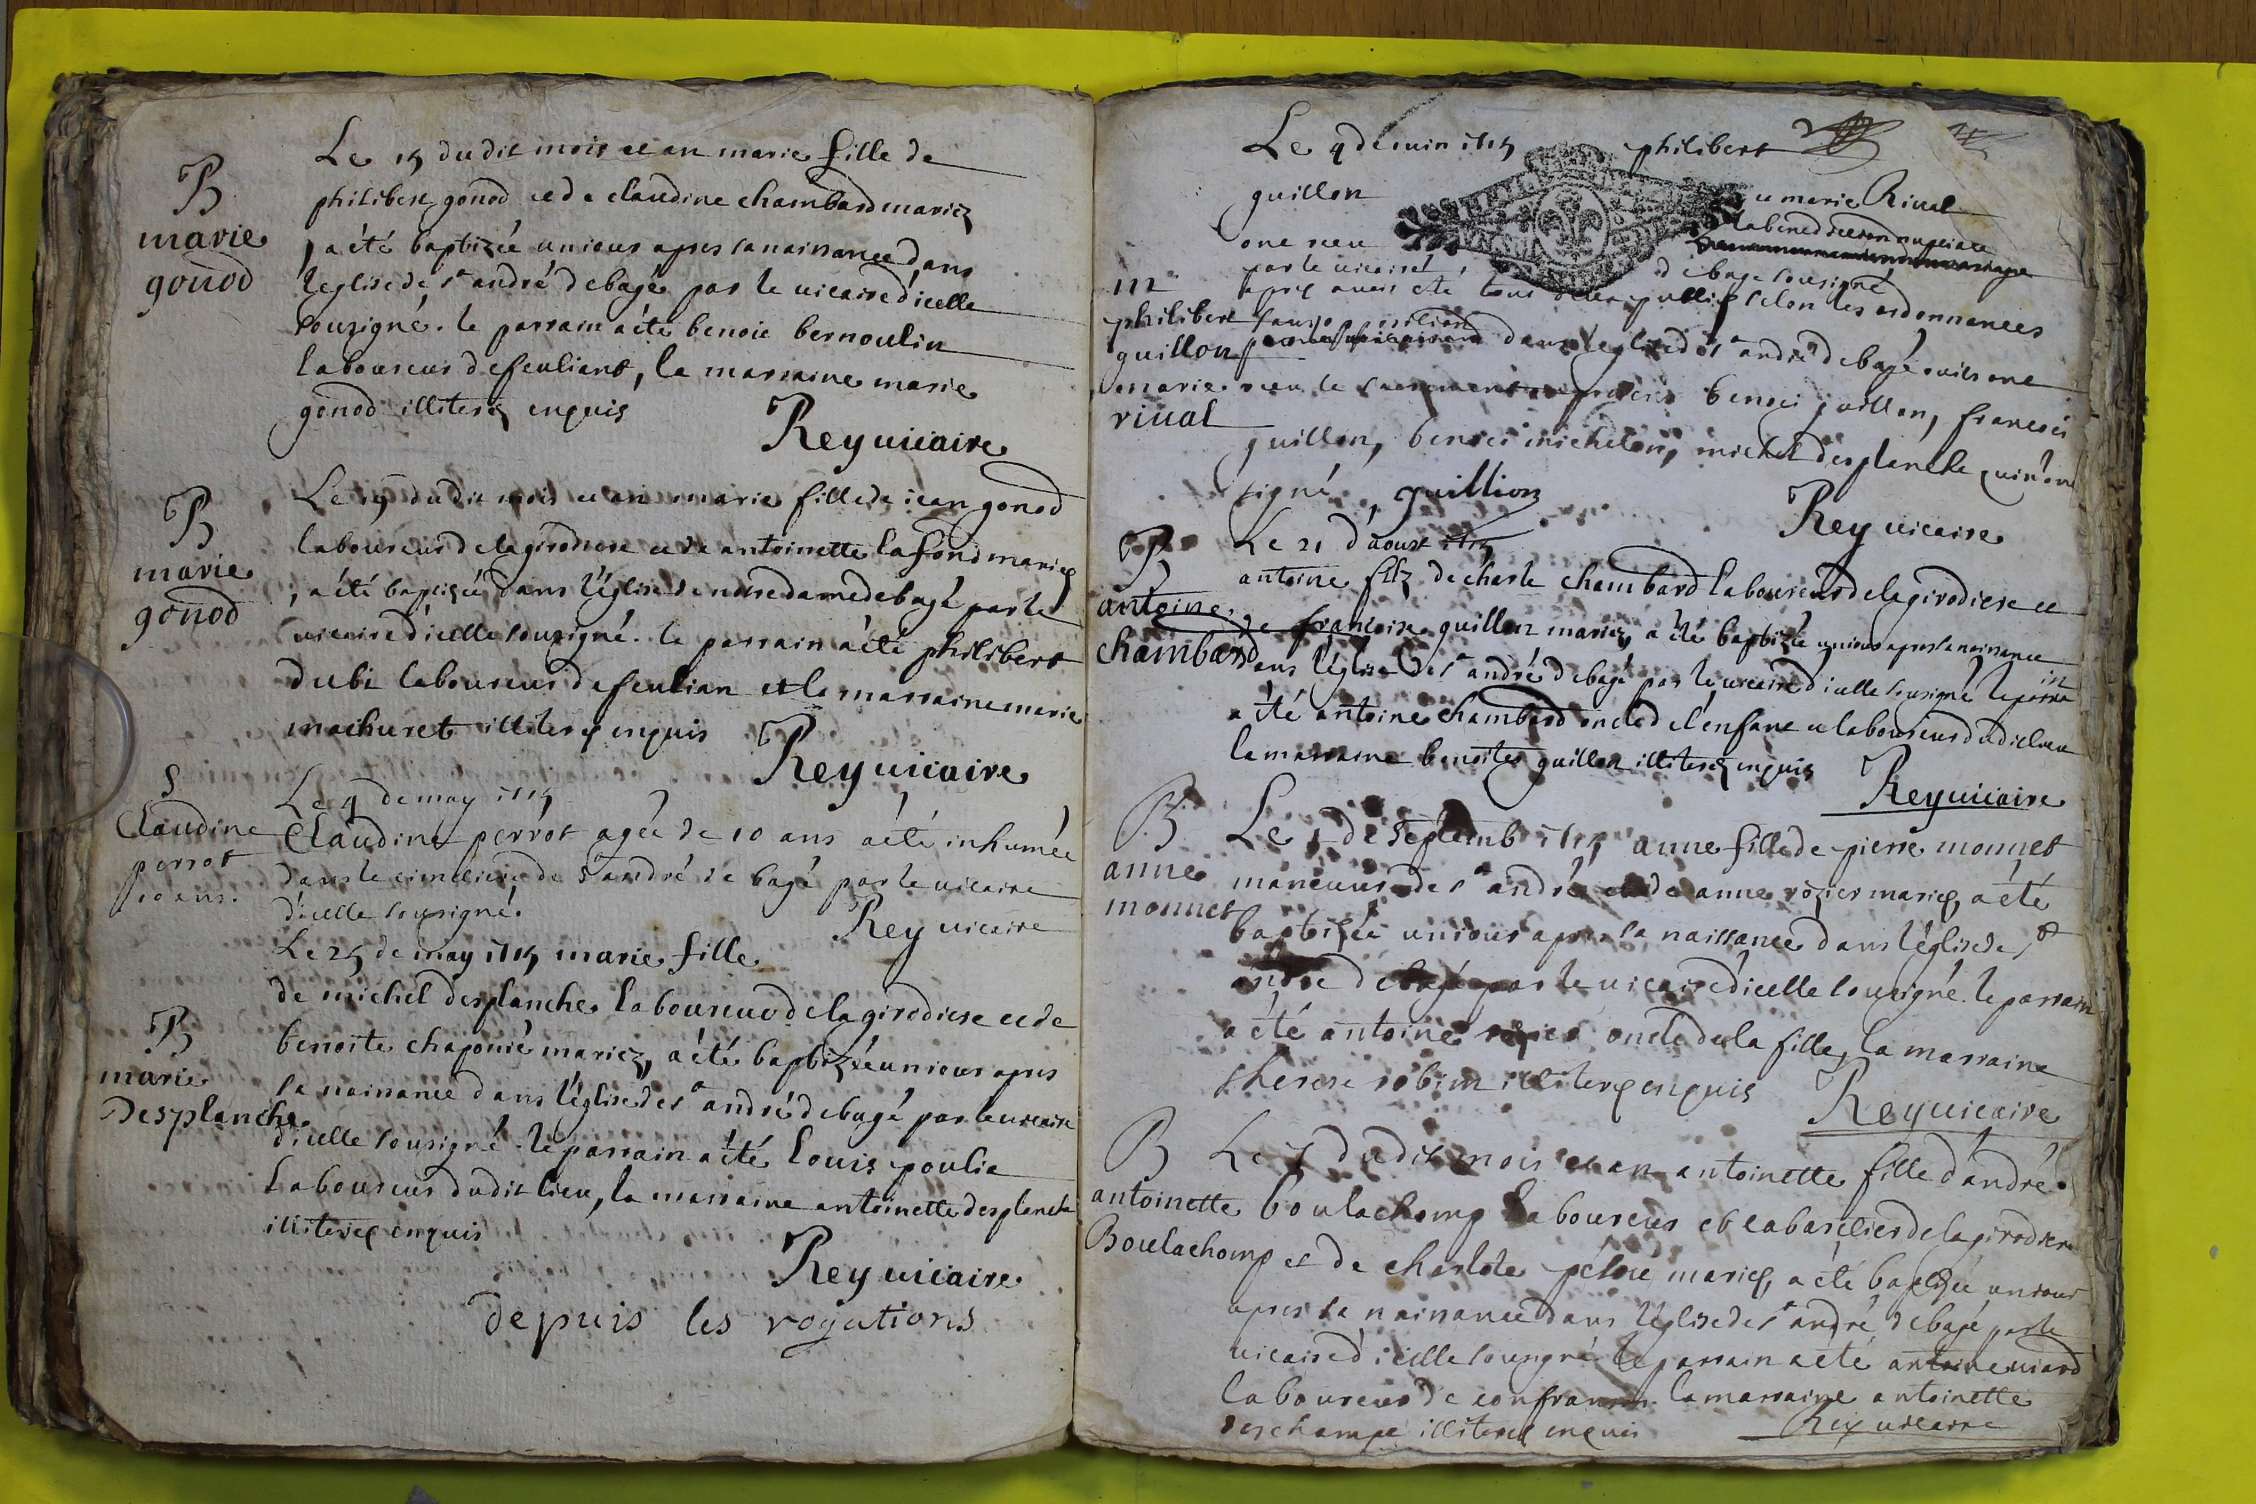 B
marie
gonod
Le 15 dudit mois et an marie fille de
philibert gonod et de claudine chambard mariez
, a été baptizée un iour apres sa naissance dans
l'eglise de st andré de bagé par le vicaire d'icelle
souzigné. le parrain a été benoit bernoulin
laboureur de feuliant, la marraine marie
gonod illiterez enquis
Rey vicaire
B
marie
gonod
Le 19 dudit mois et an marie fille de iean gonod
laboureur de la girodiere et de antoinette lafond mariez
, a été baptizée dans l'église de notre dame de bagé par le
vicaire d'icelle souzigné. le parrain a été philibert
dubi laboureur de feulian et la marraine marie
machuret illiterez enquis
Rey vicaire
S
Claudine
perrot
10 ans.
Le 9 de may 1715
Claudine perrot agée de 10 ans a été inhumée
dans le cimetiere de st andré de bagé par le vicaire
d'icelle souzigné.
Rey vicaire
B
marie
Desplanche
Le 25 de may 1715 marie fille
de michel desplanche laboureur de la girodiere et de
benoite chaponié mariez, a été baptizée un iour apres
sa naissance dans l'église de st andré de bagé par le vicaire
d'icelle souzigné. le parrain a été louis poulie
laboureur dudit lieu, la marraine antoinette desplanche
illiterez enquis
Rey vicaire
depuis les rogations
Le 9 de iuin 1715 philibert
guillon et marie Rival
ont receu la benediction nuptiale
par le vicaire de st de bagé souzigné
apres avoir été tous deux publiez selon les ordonnances
sans opposition dans l'eglise de st andré de bagé ou ils ont
receu le sacrement benoi guillon, francois
guillon, benoi micheton, michel desplanche qui n'ont
signé, guillion
Rey vicaire
m
philibert
guillon
marie
rival
B
antoine
chambard
Le 21 d'aoust 1715
antoine filz de charle chambard laboureur de la girodiere et
de francoise guillon mariez, a été baptizé un iour apres sa naissance
dans l'église de st andré de bagé par le vicaire d'icelle souzigné le parrain
a été antoine chambard oncle de l'enfant et laboureur dudit lieu
la marraine benoite guillon illiterez enquis
Rey vicaire
B
anne
monnet
Le 1 de septemb 1715 anne fille de pierre monnet
maneuvre de st andré et de anne rozier mariez, a été
baptizée un iour apres sa naissance dans l'église de st
andre de bagé par le vicaire d'icelle souzigné. le parrain
a été antoine rozier oncle de la fille, la marraine
therese robin illiterez enquis
Rey vicaire
B
antoinette
Boulachomp
Le 7 dudit mois et an antoinette fille d'andré
boulachomp laboureur et cabaretier de la girodiere
et de charlote mariez, a été baptizée un iour
apres sa naissance dans l'église de st andré de bagé par le
vicaire d'icelle souzigné le parrain a été antoine viard
laboureur de confrancon la marraine antoinette
deschampt illiterez enquis
Rey vicaire